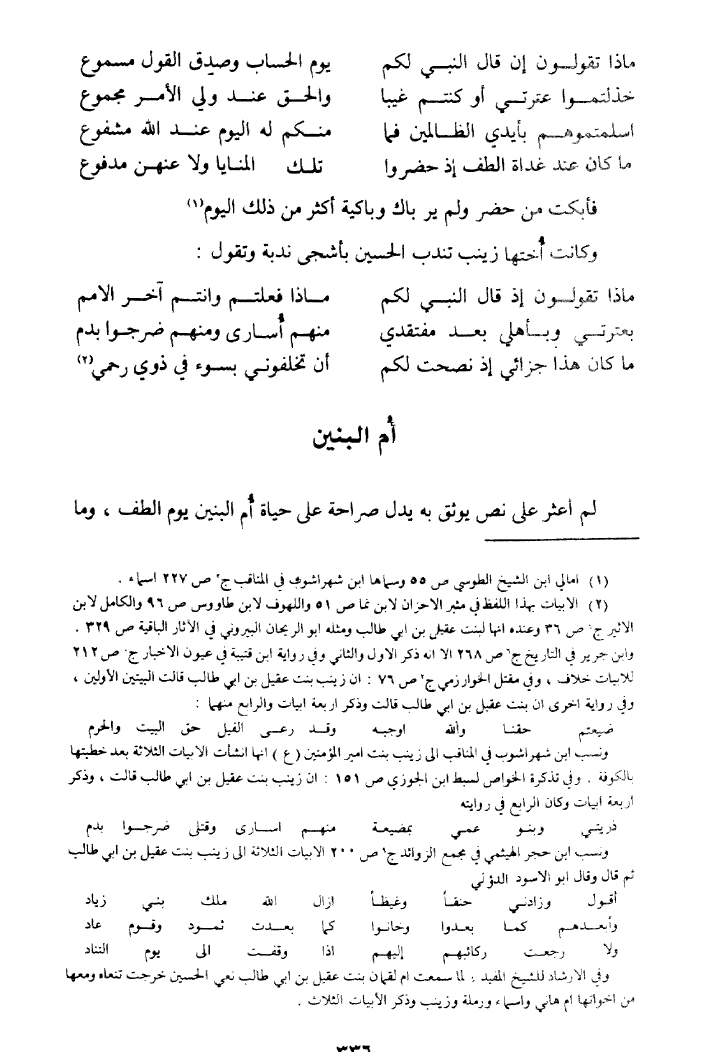 ماذا تقولون إن قال النبي لكم يوم الحساب وصدق القول مسموع
خذلتموا عترتي أو كنتم غيبا والحق عند ولي الأمر مجموع
اسلمتموهم بأيدي الظالمين فما منكم له اليوم عند الله مشفوع
ما كان عند غداة الطف إذ حضروا تلك المنايا ولا عنهن مدفوع
فأبكت من حضر ولم ير باك وباكية أكثر من ذلك اليوم (١)
وكانت أُختها زينب تندب الحسين بأشجى ندبة وتقول :
ماذا تقولون إذ قال النبي لكم ماذا فعلتم وانتم آخر الامم
بعترتي وبأهلي بعد مفتقدي منهم أُسارى ومنهم ضرجوا بدم
ما كان هذا جزائي إذ نصحت لكم أن تخلفوني بسوء في ذوي رحمي (٢)
أُم البنين
لم أعثر على نص يوثق به يدل صراحة على حياة أُم البنين يوم الطف ، وما
(١) امالي ابن الشيخ الطوسي ص ٥٥ وسماها ابن شهراشوب في المناقب ج٢ ص ٢٢٧ اسماء .
(٢) الابيات بهذا اللفظ في مثير الاحزان لابن نما ص ٥١ واللهوف لابن طاووس ص ٩٦ والكامل لابن
الاثير ج ص ٣٦ وعنده انها لبنت عقيل بن ابي طالب ومثله ابو الريحان البيروني في الآثار الباقية ص ٣٢٩ .
وابن جرير في التاريخ ج٦ ص ٢٦٨ الا انه ذكر الاول والثاني وفي رواية ابن قتيبة في عيون الاخبار ج ص ٢١٢
للابيات خلاف ، وفي مقتل الخوارزمي ج٢ ص ٧٦ : ان زينب بنت عقيل بن ابي طالب قالت البيتين الأولين ،
وفي رواية اخرى ان بنت عقيل بن ابي طالب قالت وذكر اربعة ابيات والرابع منهما :
ضيعتم حقنا والله اوجبه وقد رعى الفيل حق البيت والحرم
ونسب ابن شهراشوب في المناقب الى زينب بنت امير المؤمنين ( ع ) انها انشأت الابيات الثلاثة بعد خطبتها
بالكوفة . وفي تذكرة الخواص لسبط ابن الجوزي ص ١٥١ : ان زينب بنت عقيل بن ابي طالب قالت ، وذكر
اربعة ابيات وكان الرابع في روايته
ذريتي وبنو عمي بمضيعة منهم اسارى وقتلى ضرجوا بدم
ونسب ابن حجر الهيثمي في مجمع الزوائد ج٩ ص ٢٠٠ الابيات الثلاثة الى زينب بنت عقيل بن ابي طالب
ثم قال وقال ابو الاسود الدؤلي
أقول وزادني حنقاً وغيظاً ازال الله ملك بني زياد
وأبعدهم كما بعدوا وخانوا كما بعدت ثمود وقوم عاد
ولا رجعت ركائبهم إليهم اذا وقفت الى يوم التناد
وفي الارشاد للشيخ المفيد : لما سمعت ام لقمان بنت عقيل بن ابي طالب نعي الحسين خرجت تنعاه ومعها
من اخواتها ام هاني واسماء ورملة وزينب وذكر الأبيات الثلاث .
٣٣٦